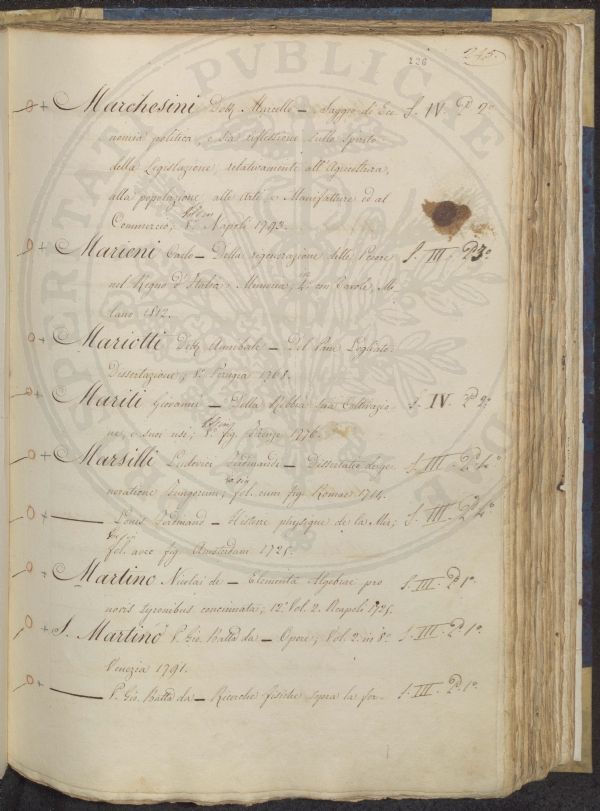 245.
126
Marchesini Dott. Marcello — Saggio di Eco S. IV. P. 2º
nomia politica, o sia riflessione sullo spirito
della Legislazione, relativamente all'Agricoltura,
alla popolazione, alle Arti, e Manifatture ed al
Commercio; 8º Napoli 1793.
Marioni Carlo — Della rigenerazione delle Pecore S. III. P. 3º
nel Regno d'Italia; Memoria, 4º con Tavole, Mi
lano 1812.
Mariotti Dott. Annibale — Del Pane Logliato.
Dissertazione; 8º Perugia
Mariti Giovanni — Della Robbia sua Coltivazio S. IV. P. 2º
ne, e suoi usi; 8º fig. Firenze 1776.
Marsilli Ludovici Ferdinandi — Dissertatio de ge S. III. P. 4º
neratione fungorum; fol. cum fig. Romae 1714.
——— Louis Ferdinand — Histoire physique de la Mer; S. III. P. 4º
fol. avec fig. Amsterdam 1725.
Martino Nicolai de — Elementa Algebrae pro S. III. P. 1º
novis tyronibus concinnata; 12º Vol. 2. Neapoli 1725.
S. Martino P. Gio. Batta da — Opere; Vol. 2. in 8º S. III. P. 1º
Venezia 1791.
——— P. Gio. Batta da — Ricerche fisiche sopra la fer- S. III. P. 1º
PUBLICAE